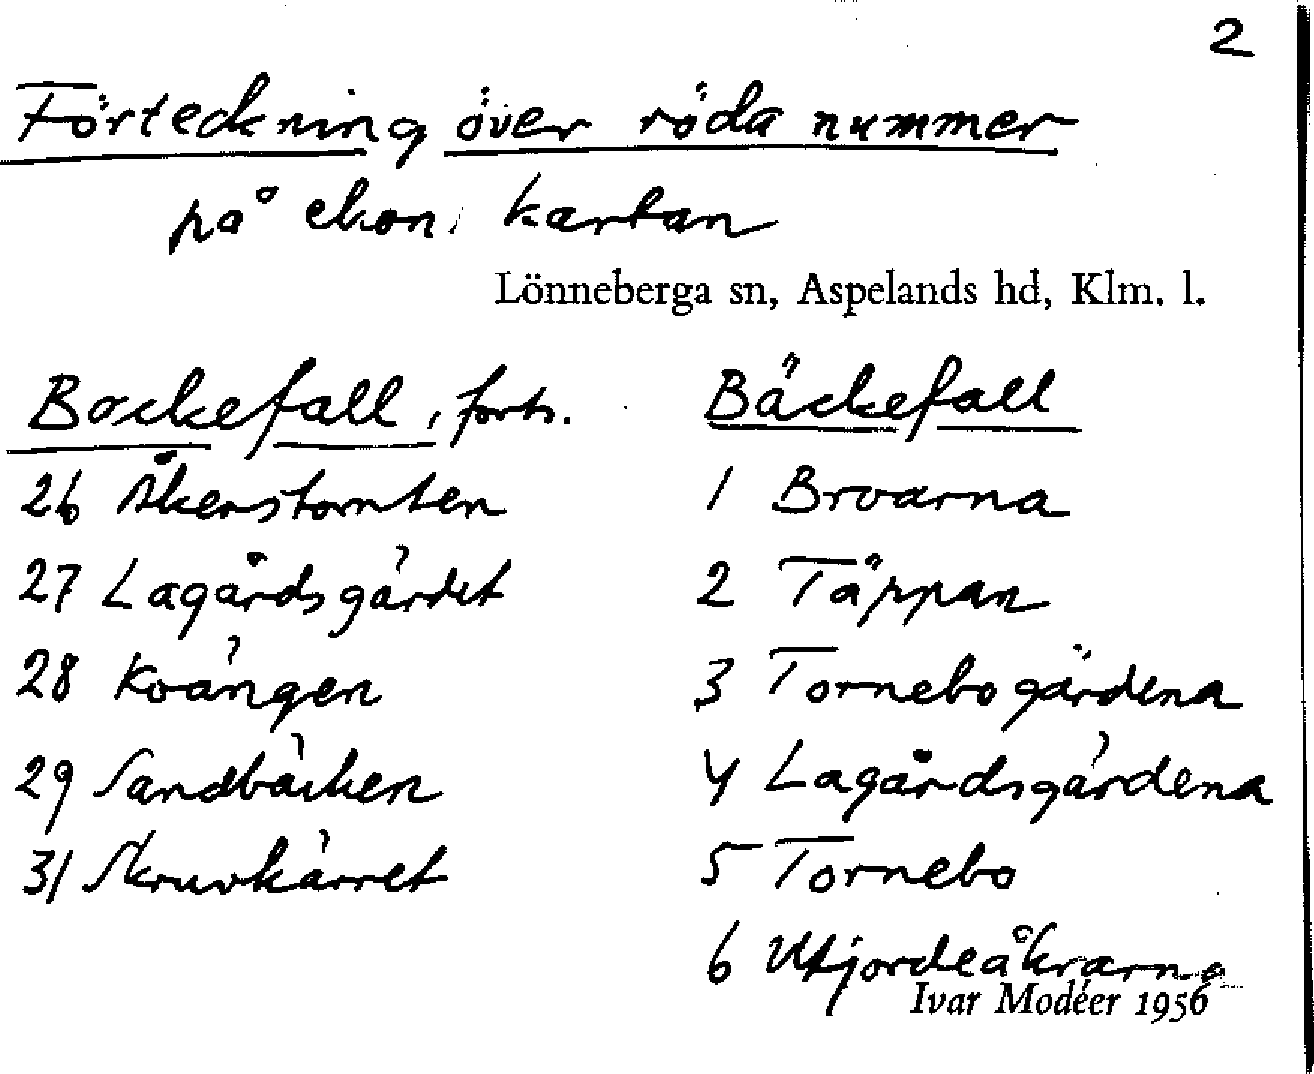 2
Förteckning över röda nummer
på ekon. kartan
Lönneberga sn, Aspelands hd, Klm. l.
Bockefall, forts.
26 Åkerstomten
27 Lagårdsgärdet
28 Koängen
29 Sandbäcken
31 Skruvkärret
Bäckefall
1 Broarna
2 Täppan
3 Tornebogärdena
4 Lagårdsgärdena
5 Tornebo
6 Utjordeåkrarna
Ivar Modéer 1956